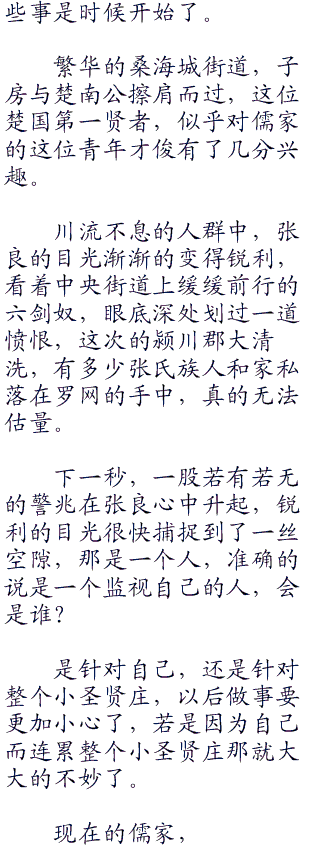 些事是时候开始了。
繁华的桑海城街道，子
房与楚南公擦肩而过，这位
楚国第一贤者，似乎对儒家
的这位青年才俊有了几分兴
趣。
川流不息的人群中，张
良的目光渐渐的变得锐利，
看着中央街道上缓缓前行的
六剑奴，眼底深处划过一道
愤恨，这次的颍川郡大清
洗，有多少张氏族人和家私
落在罗网的手中，真的无法
估量。
下一秒，一股若有若无
的警兆在张良心中升起，锐
利的目光很快捕捉到了一丝
空隙，那是一个人，准确的
说是一个监视自己的人，会
是谁？
是针对自己，还是针对
整个小圣贤庄，以后做事要
更加小心了，若是因为自己
而连累整个小圣贤庄那就大
大的不妙了。
现在的儒家，